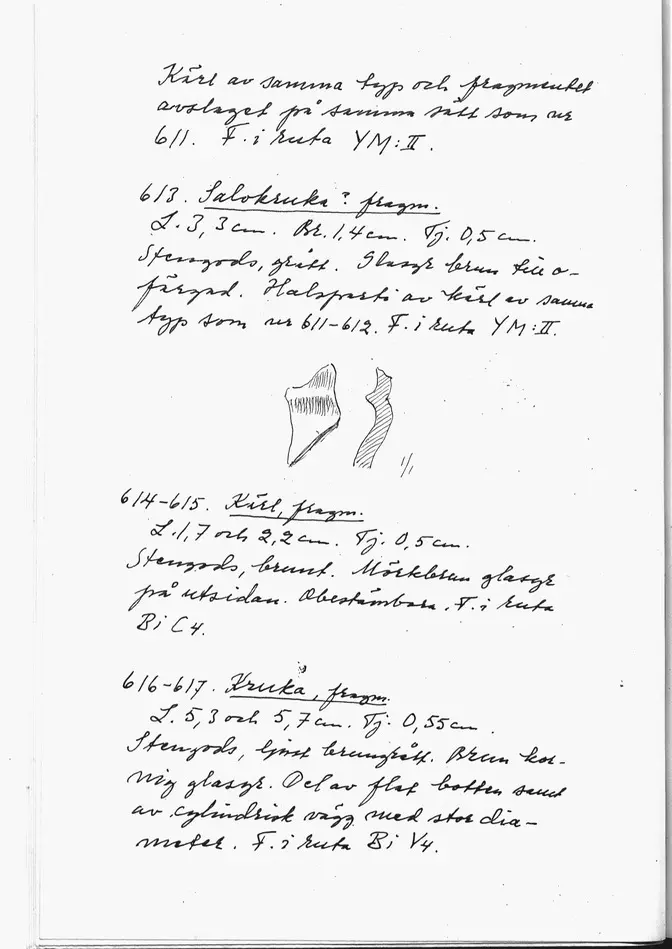 Kärl av samma typ och fragmentet
avslaget på samma sätt som nr
611. F. i ruta YM:II.
613. Salvkruka? fragm.
L. 3,3 cm. Br. 1,4 cm. Tj. 0,5 cm.
Stengods, grått. Glasyr brun till o-
färgad. Halsparti av kärl av samma
typ som nr 611-612. F. i ruta YM:II.
1/1
614-615. Kärl, fragm.
L. 1,7 och 2,2 cm. Tj. 0,5 cm.
Stengods, brunt. Mörkbrun glasyr
på utsidan. Obestämbara. F. i ruta
Bi C4.
616-617. Kruka?, fragm.
L. 5,3 och 5,7 cm. Tj. 0,55 cm.
Stengods, ljust brungrått. Brun kor-
nig glasyr. Del av flat botten samt
av cylindrisk vägg med stor dia-
meter. F. i ruta Bi V4.